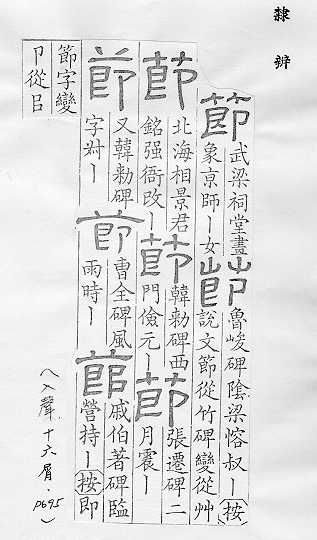 隸辨
節武梁祠堂畫
象京師ー女
莭魯峻碑陰梁愘叔ー按
說文節從竹碑變從艸
莭北海相景君
銘强衙改ー
莭韓勑碑西
門儉元ー
莭張遷碑二
月震ー
莭又韓勑碑
字ー
莭曹全碑風
雨時ー
莭戚伯著碑臨
營持ー按即
節字變
卩從吕
(入聲,十六屑.p695)